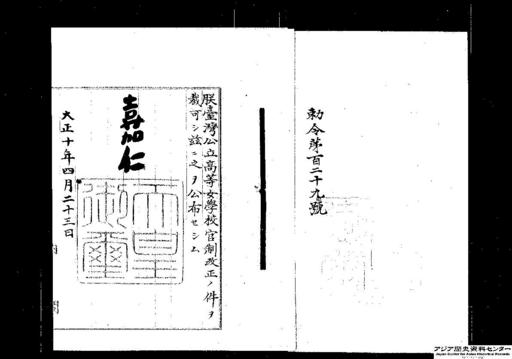 勅令第百二十九號
朕臺灣公立高等女學校官制改正ノ件ヲ
裁可シ茲ニ之ヲ公布セシム
嘉仁
天皇御璽
大正十年四月二十三日
アジア歴史資料センター
Japan Center for Asian Historical Records